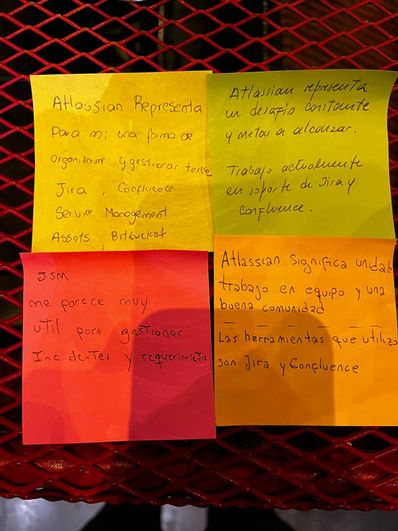 Atlassian Representa
Para mi; una forma de
organizarme y gestionar
Jira, Confluence
Service Management
Assets Bitbucket
Atlassian representa
un desafío constante
y metas a alcanzar.
Trabajo actualmente
en soporte de Jira y
Confluence.
JSM
me parece muy
util para gestionar
Incidentes y requerimientos
Atlassian Significa unidad
trabajo en equipo y una
buena comunidad
Las herramientas que utilizo
son Jira y Confluence